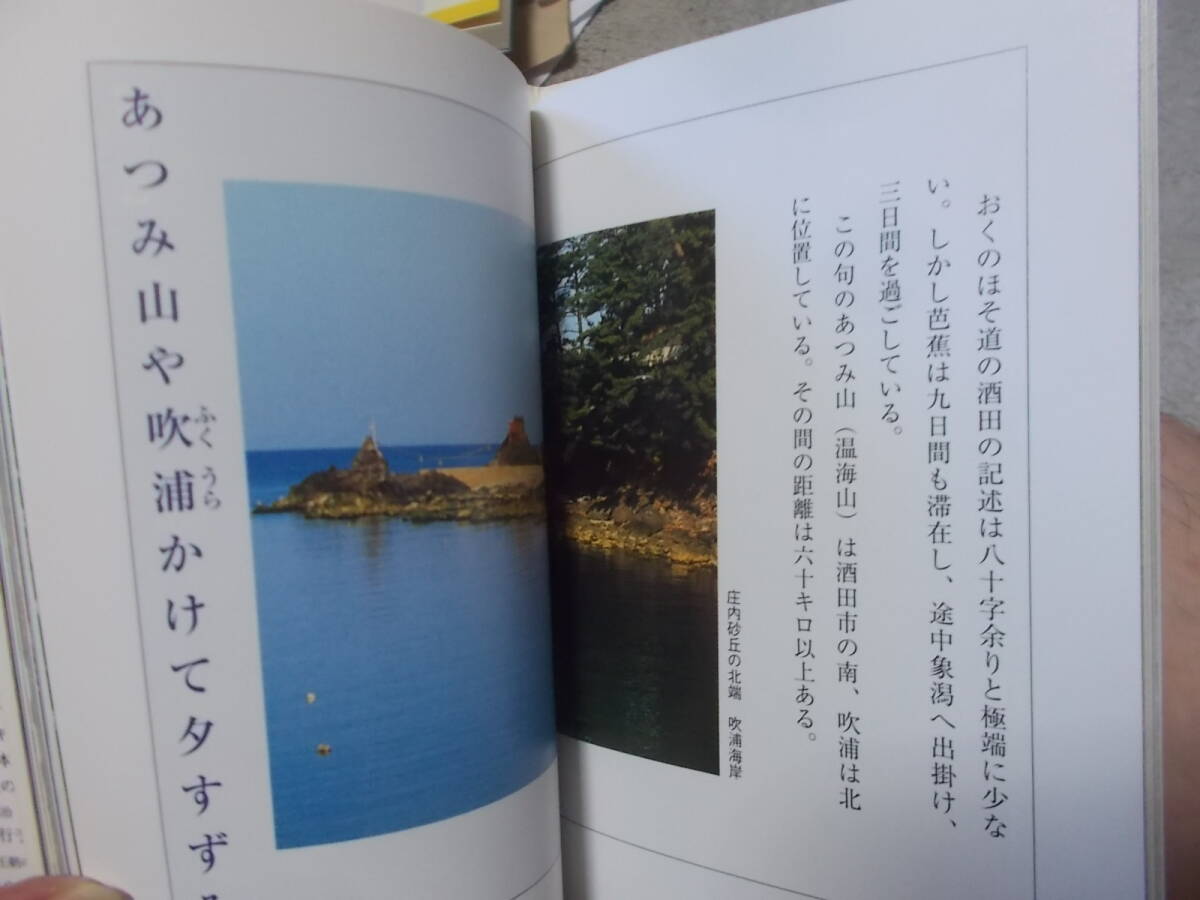 おくのほそ道の酒田の記述は八十字余りと極端に少な
い。しかし芭蕉は九日間も滞在し、途中象潟へ出掛け、
三日間を過ごしている。
この句のあつみ山（温海山）は酒田市の南、吹浦は北
に位置している。その間の距離は六十キロ以上ある。
庄内砂丘の北端　吹浦海岸
あつみ山や吹浦かけて夕すず
ふくうら